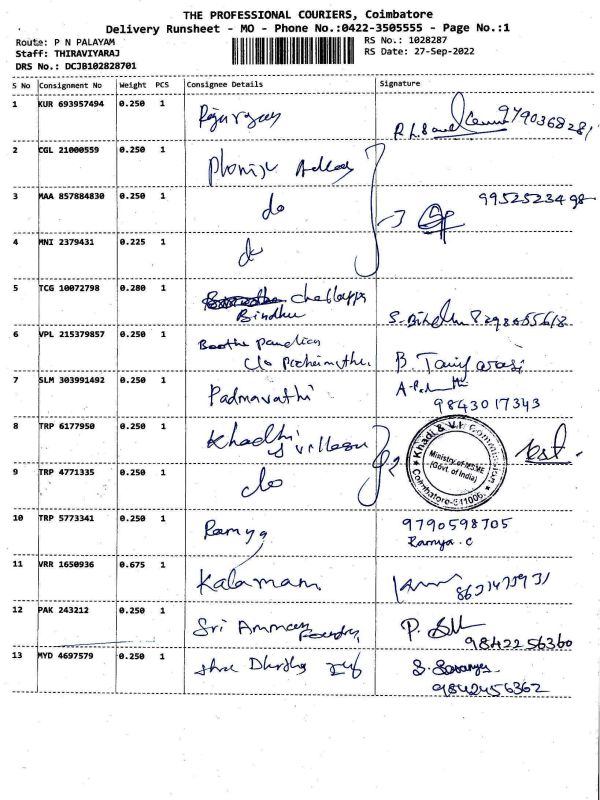 THE PROFESSIONAL COURIERS, Coimbatore
Delivery Runsheet - MO - Phone No.:0422-3505555 - Page No.:1
Route: P N PALAYAM
RS No.: 1028287
Staff: THIRAVIYARAJ
RS Date: 27-Sep-2022
DRS No.: DCJB102828701
S No Consignment No Weight PCS Consignee Details Signature
1 KUR 693957494 0.250 1 9790368281
2 CGL 21000559 0.250 1
3 MAA 857884830 0.250 1 do 9952523498
4 MNI 2379431 0.225 1 do
5 TCG 10072798 0.280 1
Bindhu
6 VPL 215379857 0.250 1 Boothe pandian
c/o
7 SLM 303991492 0.250 1 Padmavathi
9843017343
8 TRP 6177950 0.250 1 Khadhi
& village
Khadi & V.I. Commission
Ministry of MSME
(Govt. of India)
Coimbatore-641006.
9 TRP 4771335 0.250 1 do 2
10 TRP 5773341 0.250 1 Ramya 9790598705
Ramya.c
11 VRR 1650936 0.675 1 Kalamani
12 PAK 243212 0.250 1 Sri Amman Foundry P.
9842256360
13 MYD 4697579 0.250 1 S. Saranya
9842456362